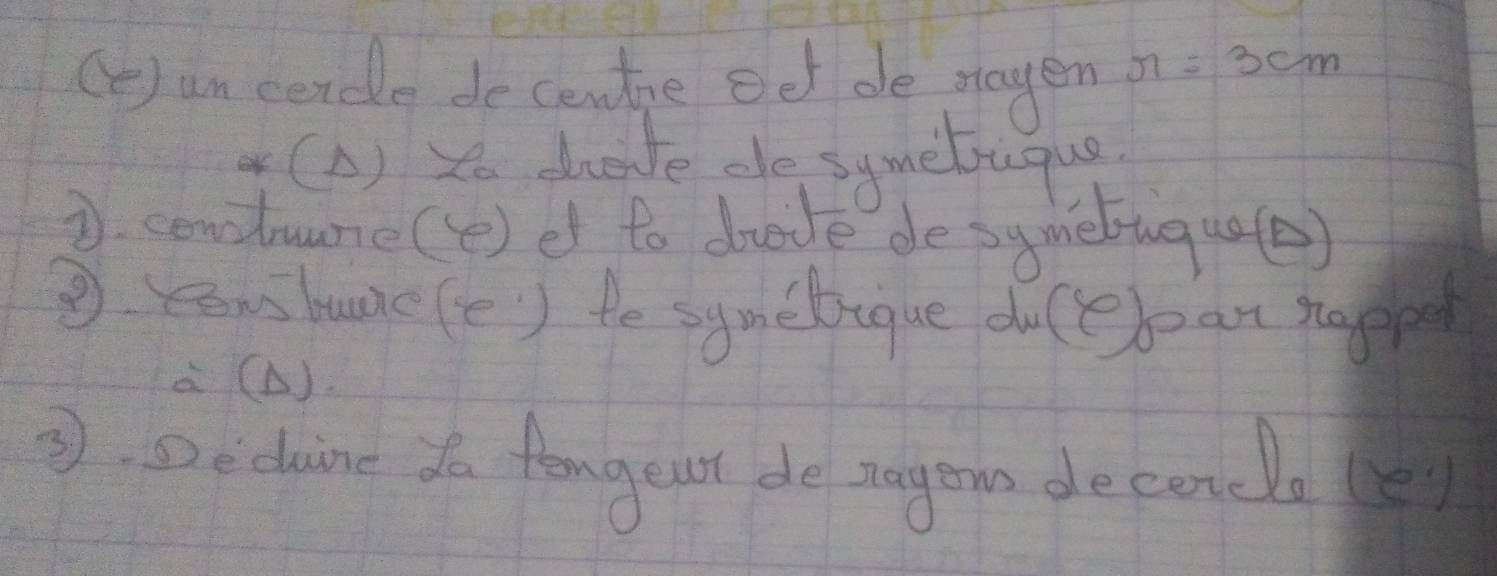 (C) un cercle de centre O et de rayon r = 3cm
* (Δ) La droite de symétrique.
1). construire (C) et la droite de symétrique (Δ)
2). Construire (C') le symétrique du (C) par rapport
à (Δ).
3). Déduire la longeur de rayons de cercle (C')